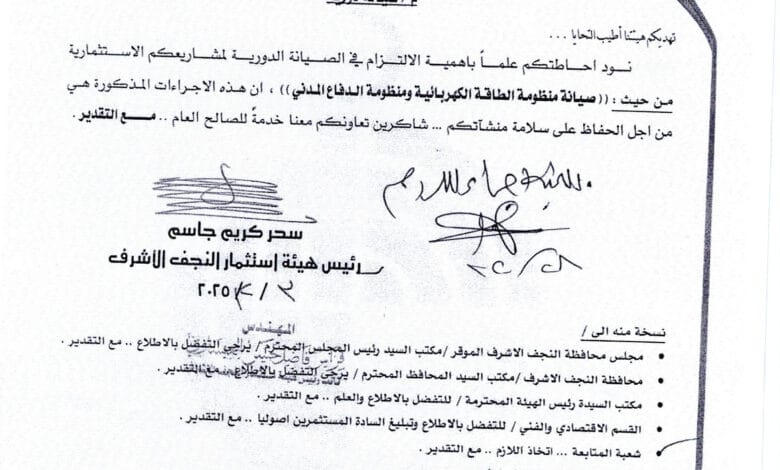 تهديكم هيئتنا أطيب التحايا ...
نود احاطتكم علماً باهمية الالتزام في الصيانة الدورية لمشاريعكم الاستثمارية
من حيث : ((صيانة منظومة الطاقة الكهربائية ومنظومة الدفاع المدني)) ، ان هذه الاجراءات المذكورة هي
من اجل الحفاظ على سلامة منشآتكم ... شاكرين تعاونكم معنا خدمةً للصالح العام .. مع التقدير .
سحر كريم جاسم
رئيس هيئة إستثمار النجف الاشرف
٢٠٢٥
المهندس
نسخة منه الى /
• مجلس محافظة النجف الاشرف الموقر /مكتب السيد رئيس المجلس المحترم / يرجى التفضل بالاطلاع .. مع التقدير .
• محافظة النجف الاشرف /مكتب السيد المحافظ المحترم / يرجى التفضل بالاطلاع .. مع التقدير .
• مكتب السيدة رئيس الهيئة المحترمة / للتفضل بالاطلاع والعلم .. مع التقدير .
• القسم الاقتصادي والفني / للتفضل بالاطلاع وتبليغ السادة المستثمرين اصوليا .. مع التقدير .
• شعبة المتابعة ... اتخاذ اللازم .. مع التقدير .